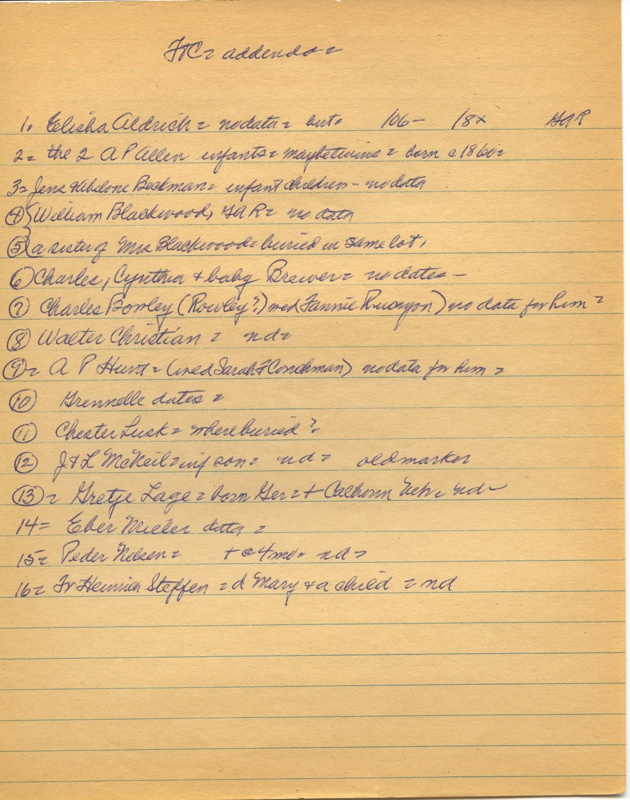 FtC = addenda =
1. Elisha Aldrich = no data = but. 106- 18x GAR
2 = the 2 A P Allen infants = maybe twins = born c 1860 =
3 = Jens & Abelone Beckman = infant children - no data
④ William Blackwood, GAR = no data
⑤ a sister of Mrs Blackwood = buried in same lot.
⑥ Charles, Cynthia & baby Brewer = no dates -
⑦ Charles Bowley (Rowley?) wed Fannie Runyon) no data for him =
⑧ Walter Christian = nd =
⑨ = A P Hunt = (wed Sarah F Conchman) no data for him =
⑩ Grennelle dates =
⑪ Chester Lusk = where buried? =
⑫ J & L McKeil = inf son = nd = old marker
⑬ = Gretje Lage = born Ger = + Calhoun Neb = nd -
14 = Eber Mieler data =
15 = Peder Nelsen = + @ 4 mo. nd =
16 = Fr Heinrich Steffen = d Mary & a child = nd